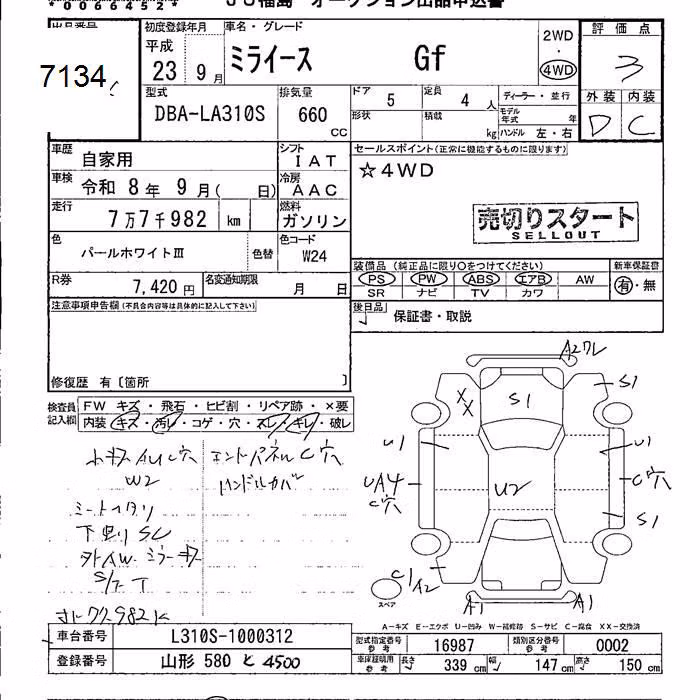 *0064524*
JU福島 オークション出品申込書
出品番号
7134
初度登録年月
平成
23 9 月
車名・グレード
ミライース Gf
2WD
・
4WD
評価点
3
外装 内装
D C
型式
DBA-LA310S
排気量
660
CC
ドア
5
定員
4 人
ディーラー・並行
形状
積載
kg
モデル年式
年
ハンドル 左・右
車歴
自家用
シフト
IAT
車検
令和 8 年 9 月( 日)
冷房
AAC
走行
7万7千982 km
燃料
ガソリン
色
パールホワイトⅢ
色替
色コード
W24
R券
7,420 円
名変通知期限
月 日
セールスポイント(正常に機能するものに限ります)
☆4WD
売切りスタート
SELLOUT
装備品(純正品に限り〇をつけてください)
PS PW ABS エアB AW
SR ナビ TV カワ
新車保証書
有・無
後日品
保証書・取説
注意事項申告欄(不具合内容等は具体的に記入して下さい)
修復歴 有〔箇所 〕
検査員
記入欄
FW キズ・飛石・ヒビ割・リペア跡・×要
内装 キズ・汚レ・コゲ・穴・スレ・キレ・破レ
W2
ハンドルカバー
A2
S1
XX
S1
U1
U1
UA4
C穴
U2
C穴
S1
C1
A2
スペア
A1
A1
A-キズ E-エクボ U-凹み W-補修跡 S-サビ C-腐食 XX-交換済
車台番号
L310S-1000312
登録番号
山形 580 と 4500
型式指定番号
16987
類別区分番号
0002
車庫証明用参考
長さ 339 cm
幅 147 cm
高さ 150 cm